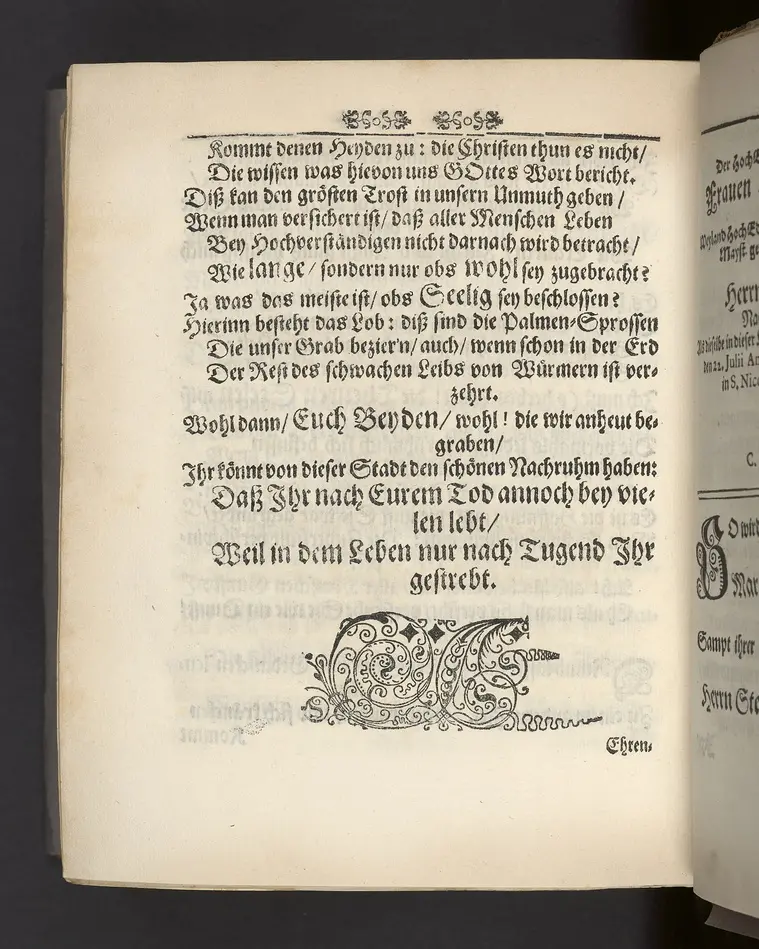 Kommt denen Heyden zu : die Christen thun es nicht/
Die wissen was hievon uns GOttes Wort bericht.
Diß kan den grösten Trost in unsern Unmuth geben /
Wenn man versichert ist/ daß aller Menschen Leben
Bey Hochverständigen nicht darnach wird betracht /
Wie lange/ sondern nur obs wohl sey zugebracht?
Ja was das meiste ist/ obs Seelig sey beschlossen ?
Hierinn besteht das Lob : diß sind die Palmen-Sprossen
Die unser Grab bezier'n/ auch/ wenn schon in der Erd
Der Rest des schwachen Leibs von Würmern ist ver-
zehrt.
Wohl dann/ Euch Beyden/ wohl ! die wir anheut be-
graben/
Ihr könnt von dieser Stadt den schönen Nachruhm haben:
Daß Ihr nach Eurem Tod annoch bey vie-
len lebt/
Weil in dem Leben nur nach Tugend Ihr
gestrebt.
Ehren-
Der Hoch
Frauen
Weyland Hoch
Mayst. ge
Herrn
den 22. Julii An
in S. Nic
C.
SO wird
Mar
Sampt ihrer
Herrn Ste